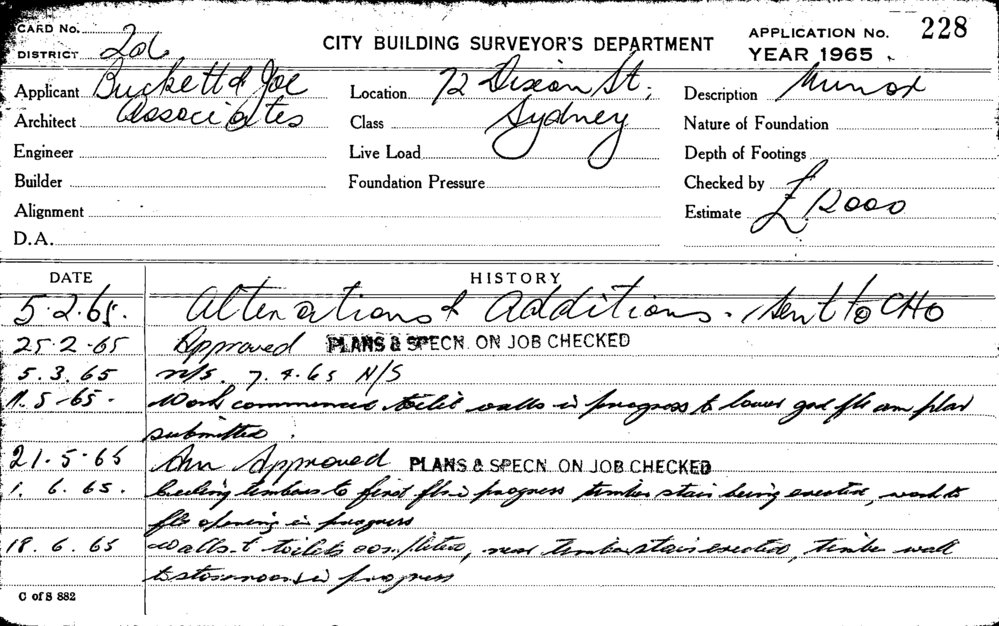 CARD No.
DISTRICT
CITY BUILDING SURVEYOR'S DEPARTMENT
APPLICATION No. 228
YEAR 1965
Applicant Buckett & Joe
Location 72 Dixon St,
Description Minor
Architect Associates
Class Sydney
Nature of Foundation
Engineer
Live Load
Depth of Footings
Builder
Foundation Pressure
Checked by
Alignment
Estimate £12000
D.A.
DATE HISTORY
5.2.65. Alterations & Additions. Sent to CHO
25.2.65 Approved PLANS & SPECN. ON JOB CHECKED
5.3.65 N/S. 7.4.65 N/S
11.5.65. Work commenced toilet walls in progress to lower gnd flr am plan
submitted.
21.5.65 Am Approved PLANS & SPECN. ON JOB CHECKED
1.6.65. Ceiling timbers to first flr in progress timber stair being erected, work to
flr opening in progress
18.6.65 Walls to toilets completed, new timber stair erected, timber wall
to storeroom in progress
C of S 882